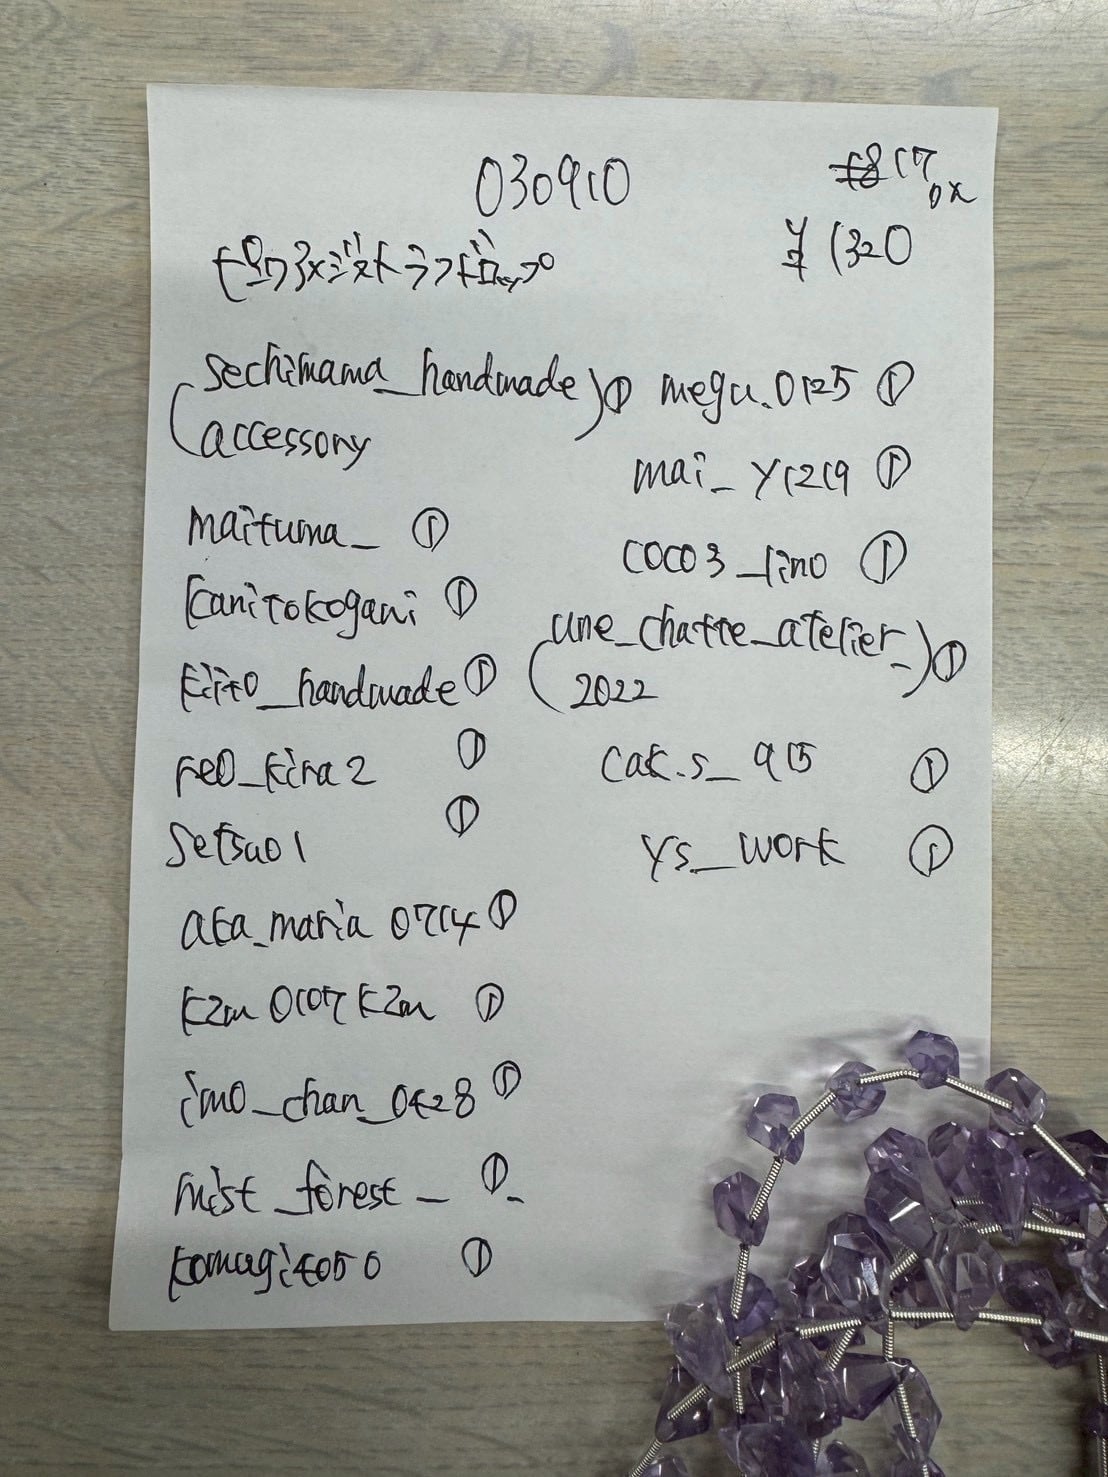 030910
17
¥1320
sechimama_handmade
accessory ①
maituma_ ①
kanitokogani ①
kiito_handmade ①
reo_kira2 ①
setsu01 ①
aka_maria0714 ①
kzm0107kzm ①
imo_chan_0428 ①
mist_forest_ ①
komugi4050 ①
megu.0125 ①
mai_y1219 ①
coco3_lino ①
(une_chatte_atelier_
2022) ①
cak.s_915 ①
ys_work ①